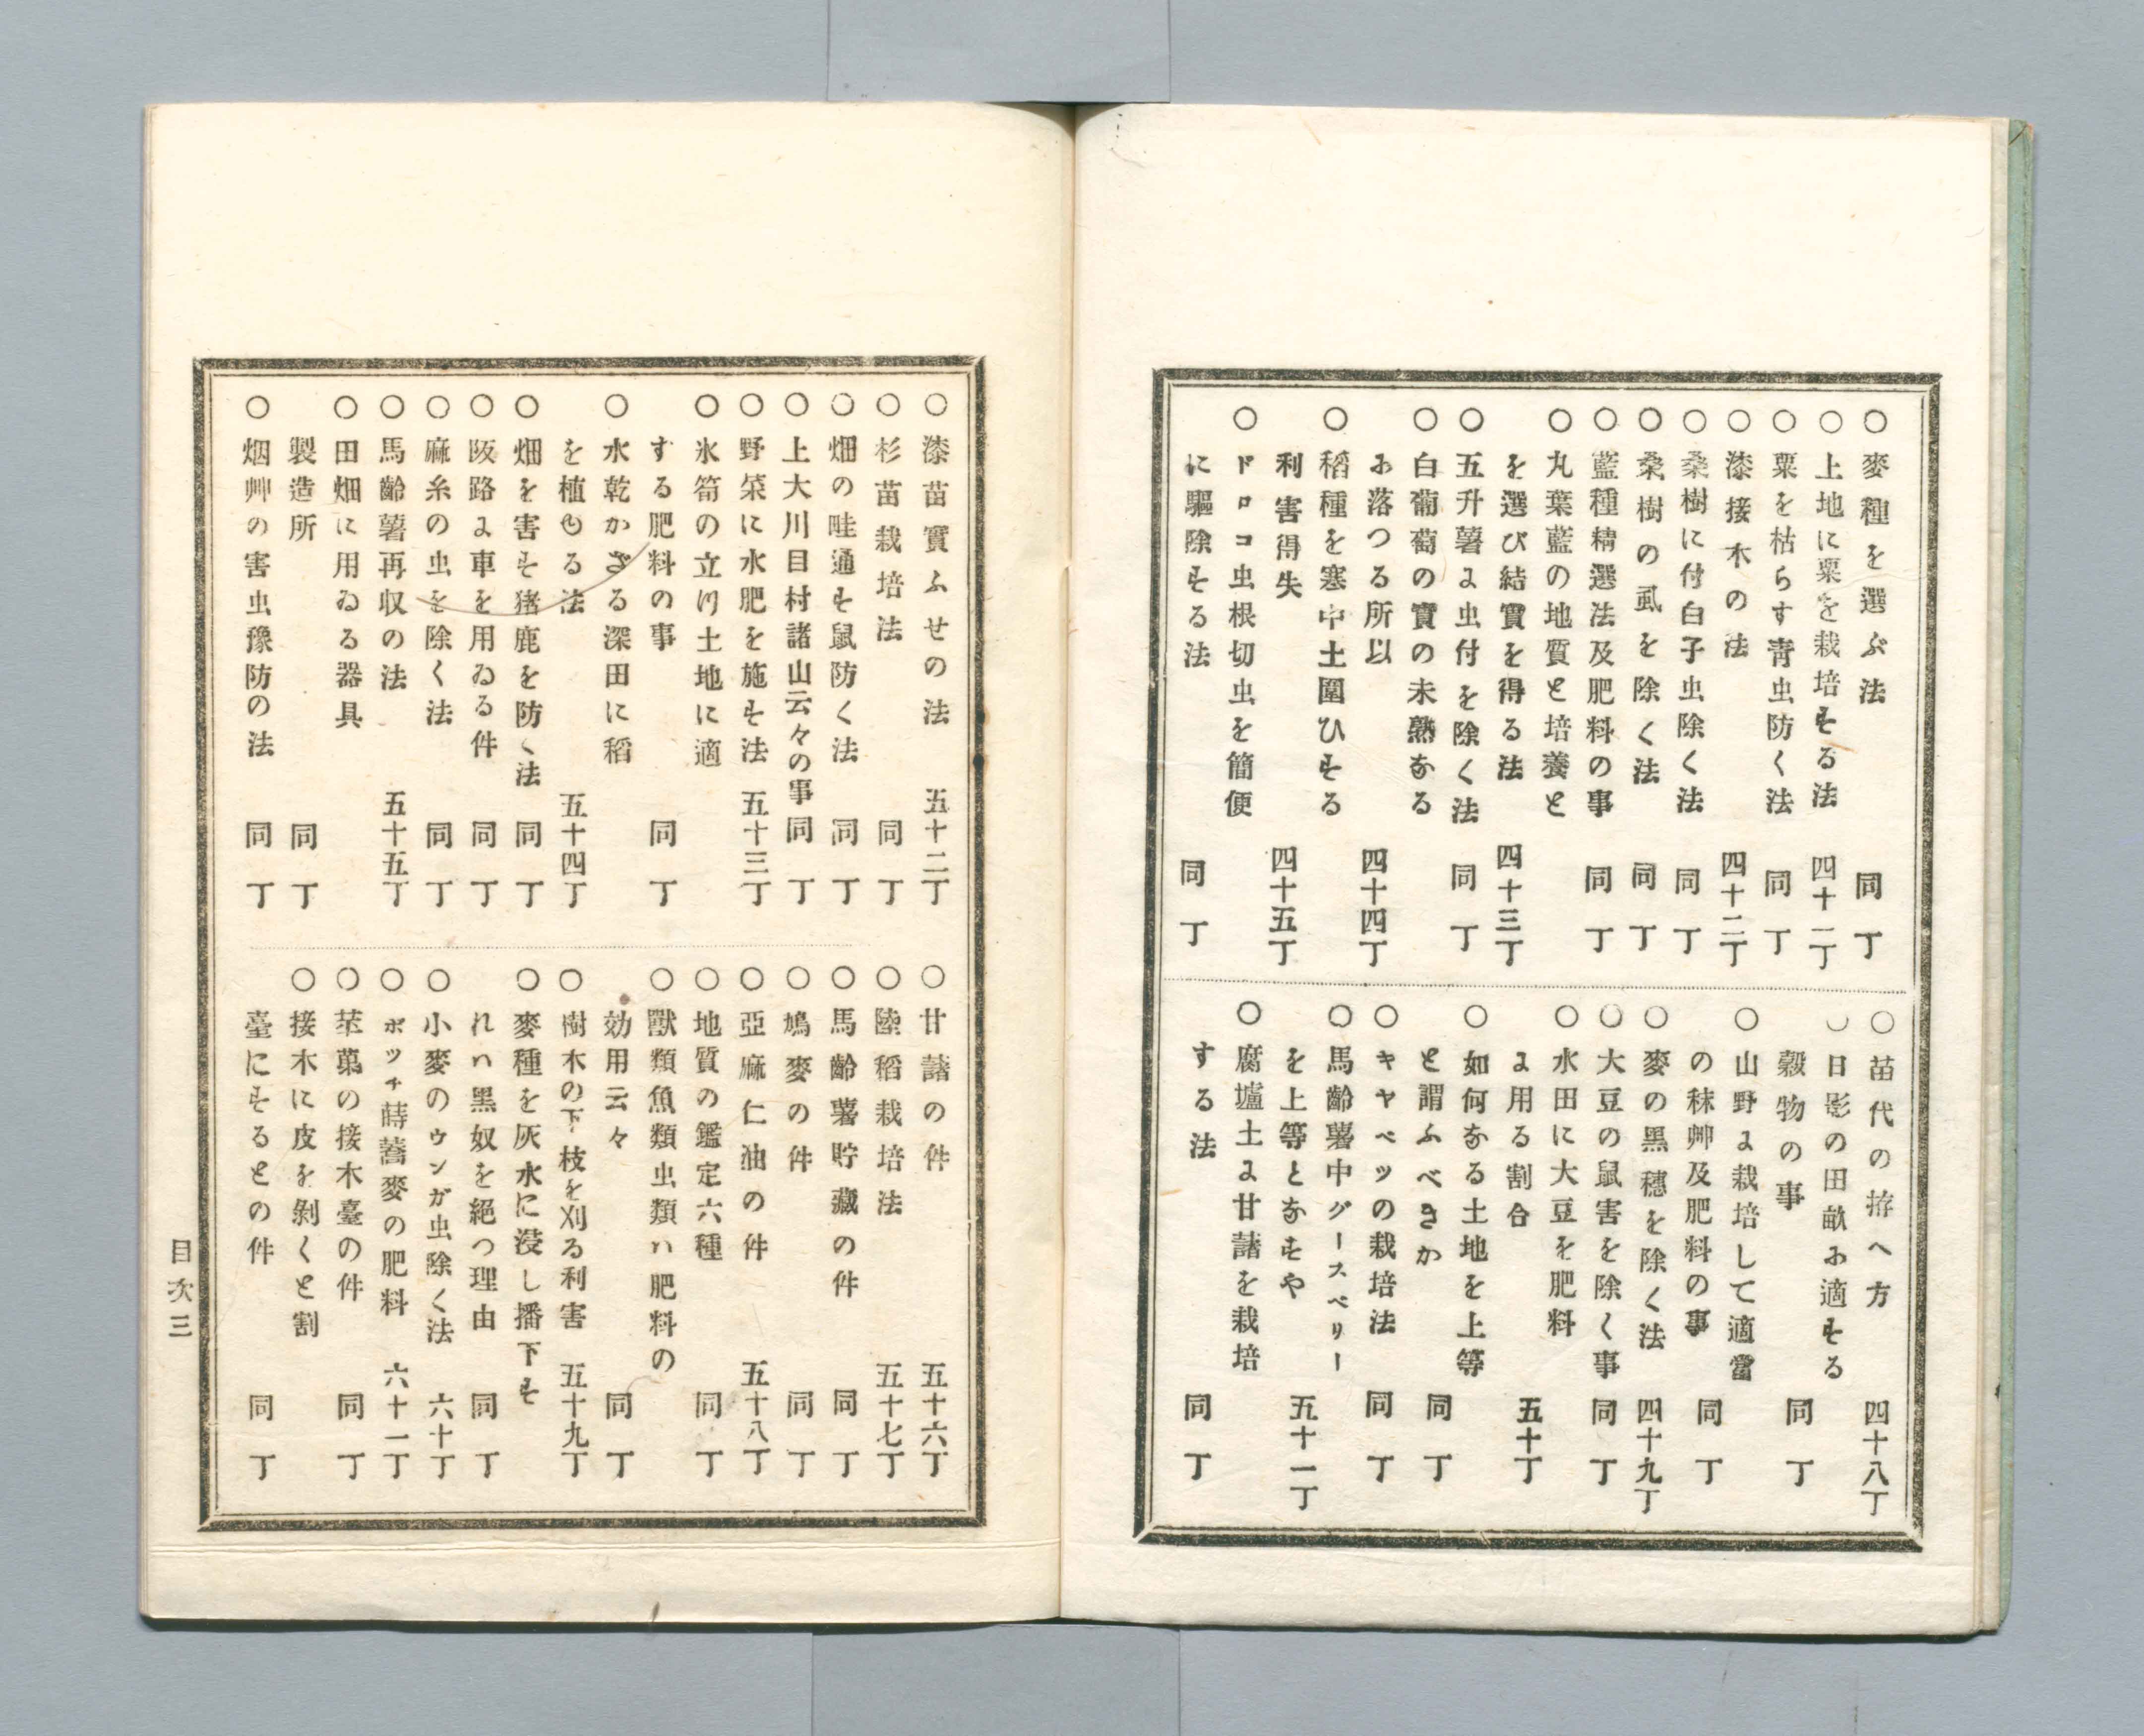 ○麥種を選ぶ法 同丁
○上地に粟を栽培する法 四十一丁
○粟を枯らす靑虫防く法 同丁
○漆接木の法 四十二丁
○桑樹に付白子虫除く法 同丁
○桑樹の虱を除く法 同丁
○藍種精選法及肥料の事 同丁
○丸葉藍の地質と培養と
を選び結實を得る法 四十三丁
○五升薯に虫付を除く法 同丁
○白葡萄の實の未熟なる
お落つる所以 四十四丁
○稻種を寒中土圍ひする
利害得失 四十五丁
○ドロコ虫根切虫を簡便
に驅除する法 同丁
○苗代の拵へ方 四十八丁
○日影の田畝お適する
穀物の事 同丁
○山野に栽培して適當
の秣艸及肥料の事 同丁
○麥の黑穗を除く法 四十九丁
○大豆の鼠害を除く事 同丁
○水田に大豆を肥料
に用る割合 五十丁
○如何なる土地を上等
と謂ふべきか 同丁
○キヤベツの栽培法 同丁
○馬齡薯中グースベリー
を上等となすや 五十一丁
○腐壚土に甘藷を栽培
する法 同丁
○漆苗實ふせの法 五十二丁
○杉苗栽培法 同丁
○畑の畦通す鼠防く法 同丁
○上大川目村諸山云々の事 同丁
○野菜に水肥を施す法 五十三丁
○氷筍の立つ土地に適
する肥料の事 同丁
○水乾かざる深田に稻
を植もる法 五十四丁
○畑を害す猪鹿を防く法 同丁
○阪路に車を用ゐる件 同丁
○麻糸の虫を除く法 同丁
○馬齡薯再収の法 五十五丁
○田畑に用ゐる器具
製造所 同丁
○烟艸の害虫豫防の法 同丁
○甘藷の件 五十六丁
○陸稻栽培法 五十七丁
○馬齡薯貯藏の件 同丁
○鳩麥の件 同丁
○亞麻仁油の件 五十八丁
○地質の鑑定六種 同丁
○獸類魚類虫類ハ肥料の
効用云々 同丁
○樹木の下枝を刈る利害 五十九丁
○麥種を灰水に浸し播下す
れハ黑奴を絕つ理由 同丁
○小麥のウンガ虫除く法 六十丁
○ボツチ蒔蕎麥の肥料 六十一丁
○苹菓の接木臺の件 同丁
○接木に皮を剝くと割
臺にするとの件 同丁
目次三